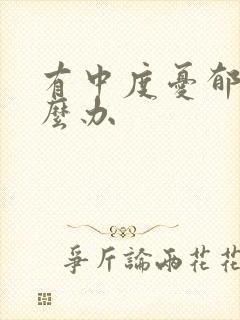 有中度憂郁
麼办
爭斤論兩花花